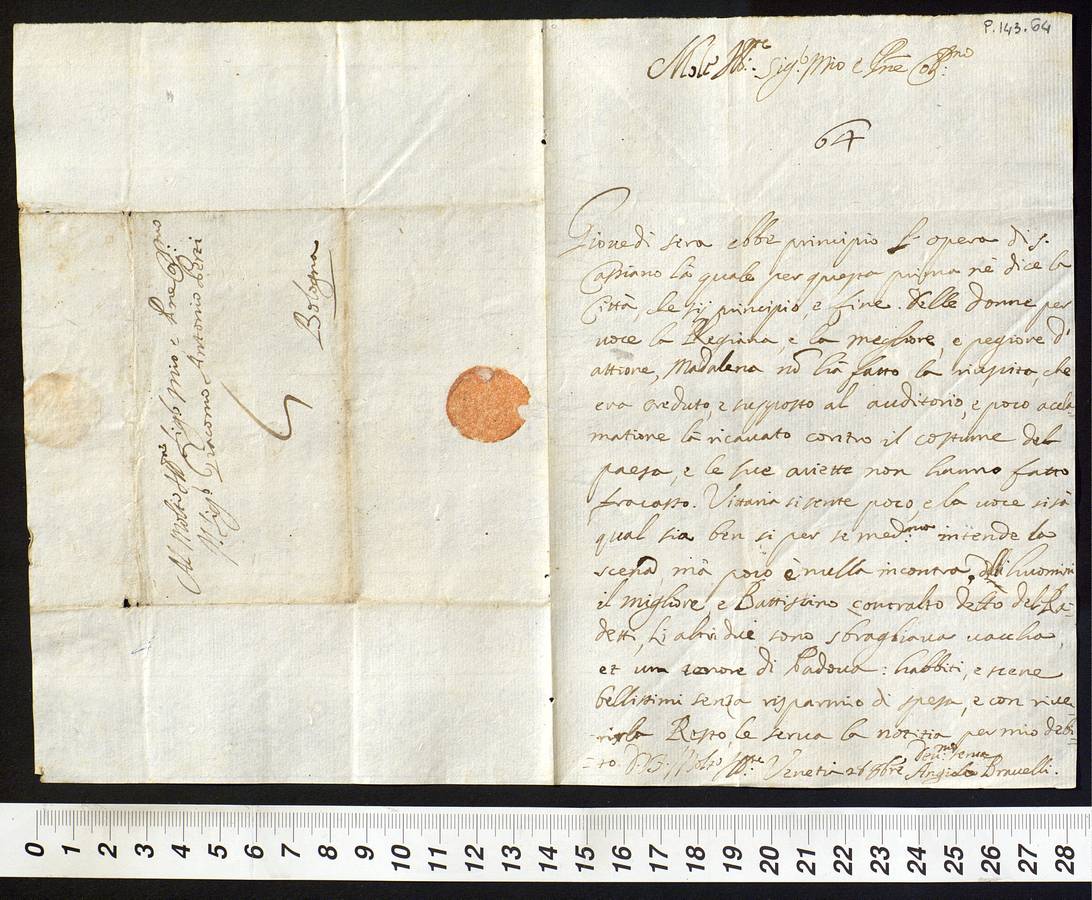 P.143.64
Molt Ill:re Sig.r mio e Pne Oss:mo
64
Giovedi sera ebbe principio l'opera di S.
Cassiano la quale per questa prima nè dice la
Città che sij principio, e fine. Delle donne per
voce la Regiana, e la megliore, e pegiore d'
attione, Madalena nõ hà fatto la riuscita, che
era creduto, e supposto al auditorio, e poco acla-
matione hà ricavato contro il costume del
paese, e le sue ariette non hanno fatto
fracasso. Vittoria si sente poco, e la voce si sà
qual sia ben si per se med.mo intende la
scena, mà poco è nulla incontra. Delli huomini
il migliore e Battistino contralto detto del Ra-
detti, li altri due sono sbragliava vacha
et un tenore di Padova: habbiti, e scene
bellissimi senza risparmio di spesa, e con rive-
rirla Resto, le serva la notitia per mio debi-
to. D.V.S. Molto Ill:re Venetia 26 Xbre
Dev:mo Serv.
Angielo Bravelli.
Al Molto Ill:re Sig.r mio e Pne Oss:mo
Il Sig.r Giacomo Antonio Perti
Bologna
0 1 2 3 4 5 6 7 8 9 10 11 12 13 14 15 16 17 18 19 20 21 22 23 24 25 26 27 28